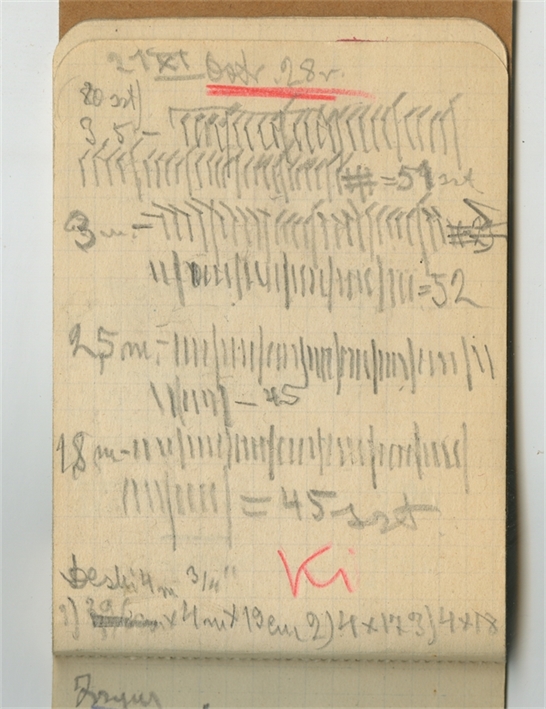 28 r.
80 szt)
3,5 -
= 51 szt
3 m. -
= 52
2,5 m. -
- 45
1,8 m -
= 45 szt
Ki
deski 4 m 3/4"
x 4 m x 13 cm, 2) 4 x 17 3) 4 x 18